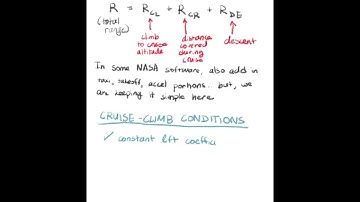 R = R_CL + R_CR + R_DE
(total range)
climb to cruise altitude
distance covered during cruise
descent
In some NASA software, also add in
taxi, takeoff, accel portions. but, we
are keeping it simple here
CRUISE-CLIMB CONDITIONS
✓ constant lift coeffici